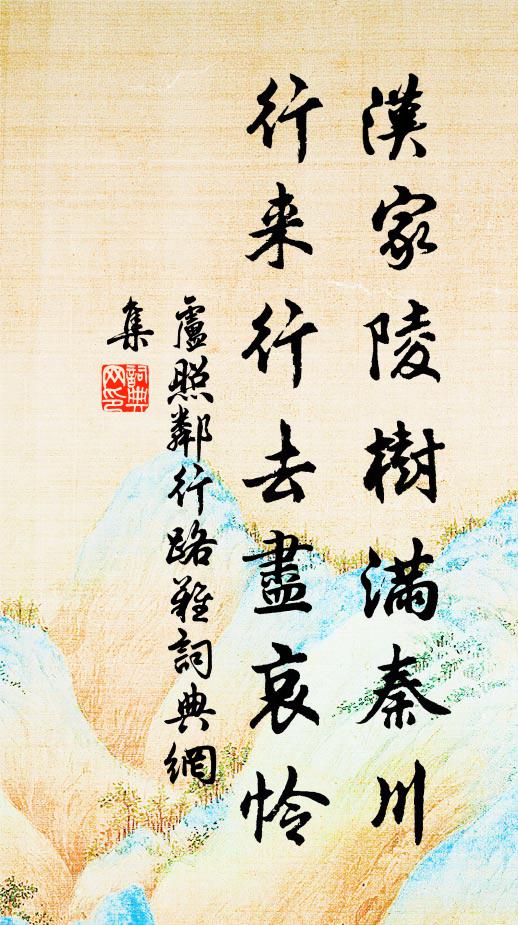 漢家陵樹滿秦川
行来行去盡哀怜
盧照鄰行路難詞典網
集
詞典
网印